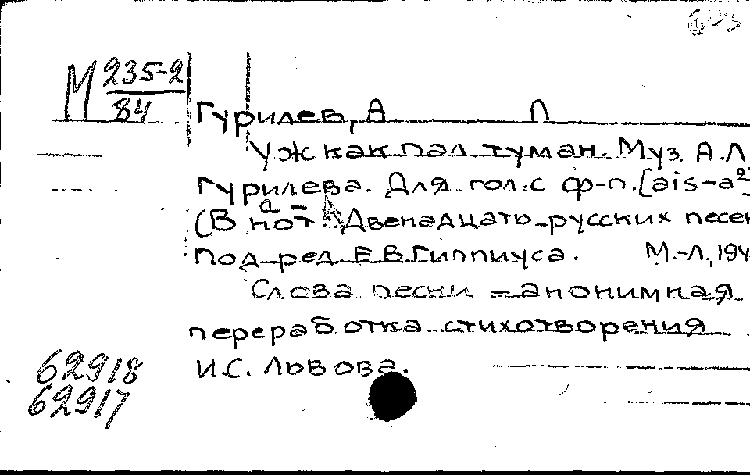 М 235-2
84
Гурилев, А Л
Уж как пал туман. Муз. А.Л
Гурилева. Для гол. с ф-п. [ais-a²
(В нот. Двенадцать русских песен
под ред. Е.В. Гиппиуса. М.-Л., 194
Слова песни – анонимная
переработка стихотворения
И.С. Львова.
62918
62917